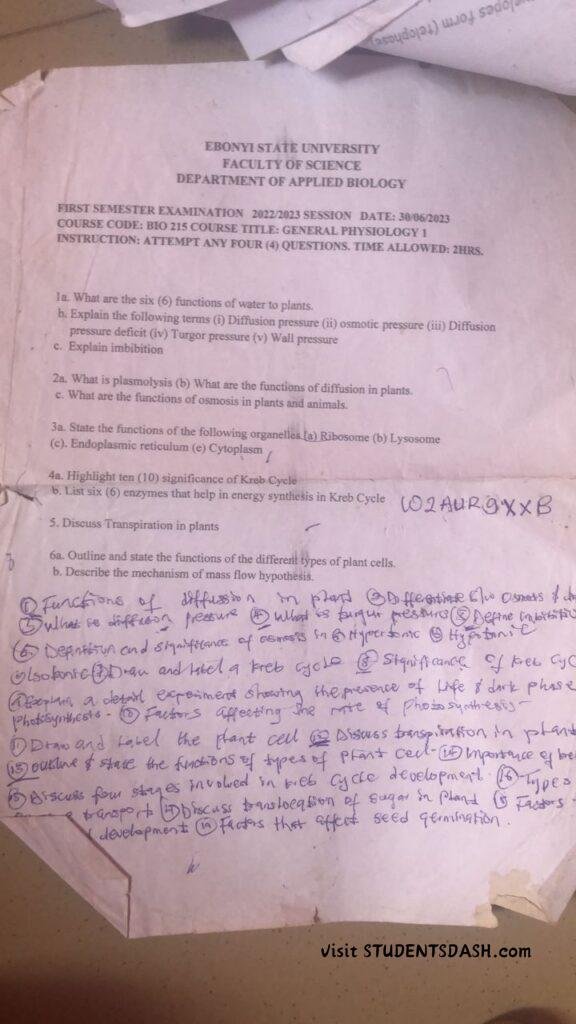 velopes form (telophase)
EBONYI STATE UNIVERSITY
FACULTY OF SCIENCE
DEPARTMENT OF APPLIED BIOLOGY
FIRST SEMESTER EXAMINATION 2022/2023 SESSION DATE: 30/06/2023
COURSE CODE: BIO 215 COURSE TITLE: GENERAL PHYSIOLOGY 1
INSTRUCTION: ATTEMPT ANY FOUR (4) QUESTIONS. TIME ALLOWED: 2HRS.
1a. What are the six (6) functions of water to plants.
b. Explain the following terms (i) Diffusion pressure (ii) osmotic pressure (iii) Diffusion
pressure deficit (iv) Turgor pressure (v) Wall pressure
c. Explain imbibition
2a. What is plasmolysis (b) What are the functions of diffusion in plants.
c. What are the functions of osmosis in plants and animals.
3a. State the functions of the following organelles (a) Ribosome (b) Lysosome
(c). Endoplasmic reticulum (e) Cytoplasm
4a. Highlight ten (10) significance of Kreb Cycle
b. List six (6) enzymes that help in energy synthesis in Kreb Cycle
5. Discuss Transpiration in plants
6a. Outline and state the functions of the different types of plant cells.
b. Describe the mechanism of mass flow hypothesis.
① Functions of diffusion in plant ② Differentiate b/w osmosis &
③ What is diffusion pressure ④ What is turgor pressure ⑤ Define
⑥ Definition and significance of osmosis in Hypertonic Hypotonic
Isotonic ⑦ Draw and label a kreb cycle ⑧ Significance of kreb cyc
⑨ Explain a detail experiment showing the presence of life & dark phase
photosynthesis - ⑩ Factors affecting the rate of photosynthesis -
⑪ Draw and Label the plant cell ⑫ Discuss transpiration in plant
⑬ outline & state the functions of types of plant cell - ⑭ Importance of
⑮ Discuss four stages involved in kreb cycle development. ⑯ Types
transport ⑰ Discuss translocation of sugar in plant ⑱ Factors
development ⑲ Factors that affect seed germination.
visit STUDENTSDASH.com